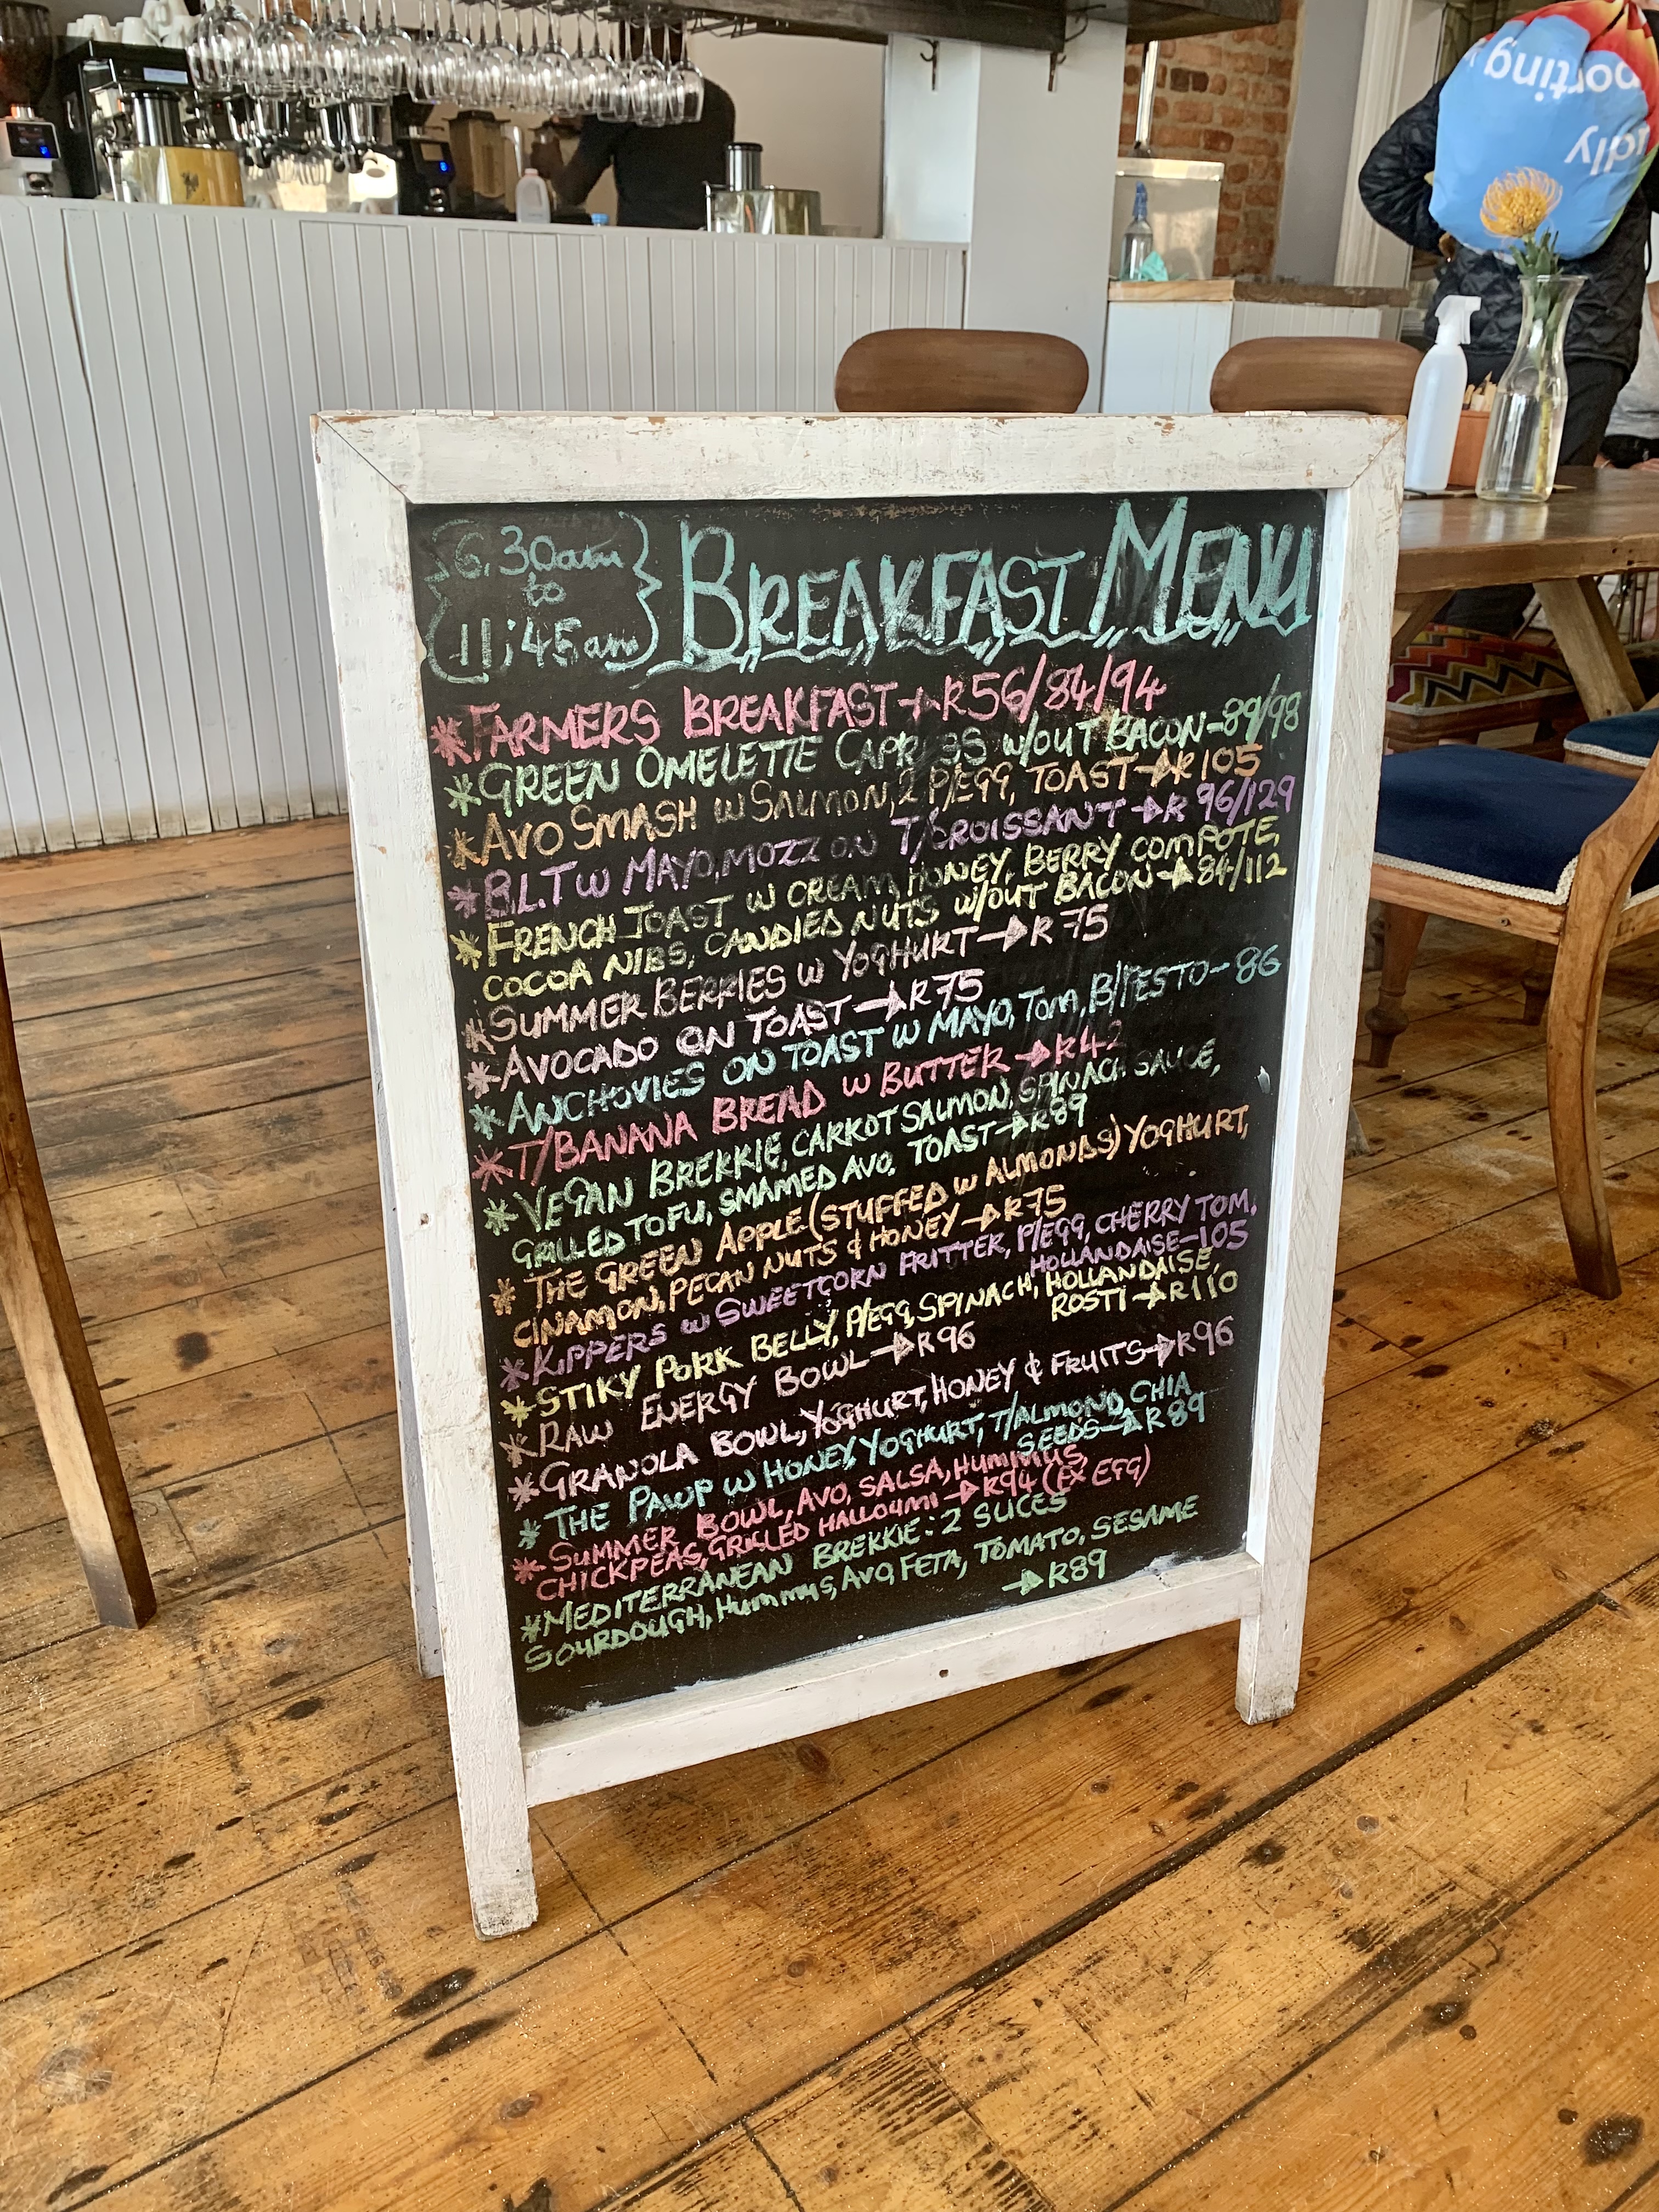 6.30am
to
11:45am
BREAKFAST MENU
*FARMERS BREAKFAST→R56/84/94
*GREEN OMELETTE CAPRESS w/OUT BACON-89/98
*AVO SMASH w SALMON, 2 P/EGG, TOAST→R105
*B.L.T w MAYO, MOZZ ON T/CROISSANT→R 96/129
*FRENCH TOAST w CREAM, HONEY, BERRY COMPOTE,
COCOA NIBS, CANDIED NUTS w/OUT BACON→84/112
*SUMMER BERRIES w YOGHURT→R75
*AVOCADO ON TOAST→R75
*ANCHOVIES ON TOAST w MAYO, TOM, B/PESTO-86
*T/BANANA BREAD w BUTTER→R42
*VEGAN BREKKIE, CARROT SALMON, SPINACH SAUCE,
GRILLED TOFU, SMAMED AVO, TOAST→R89
*THE GREEN APPLE (STUFFED w ALMONDS) YOGHURT,
CINAMON, PECAN NUTS & HONEY→R75
*KIPPERS w SWEETCORN FRITTER, P/EGG, CHERRY TOM,
HOLLANDAISE-105
*STIKY PORK BELLY, P/EGG, SPINACH, HOLLANDAISE,
ROSTI→R110
*RAW ENERGY BOWL→R96
*GRANOLA BOWL, YOGHURT, HONEY & FRUITS→R96
*THE PAWP w HONEY, YOGHURT, T/ALMOND, CHIA
SEEDS→R89
*SUMMER BOWL, AVO, SALSA, HUMMUS,
CHICKPEAS, GRILLED HALLOUMI→R94 (EX EGG)
*MEDITERRANEAN BREKKIE: 2 SLICES
SOURDOUGH, HUMMUS, AVO, FETA, TOMATO, SESAME
→R89